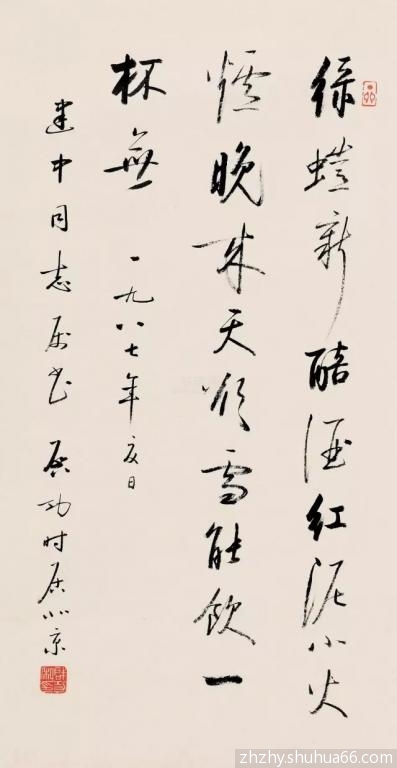 綠螘新醅酒紅泥小火
爐晚来天欲雪能飲一
杯無 一九八七年夏日
建中同志属书 启功时居北京
zhzhy.shuhua66.com